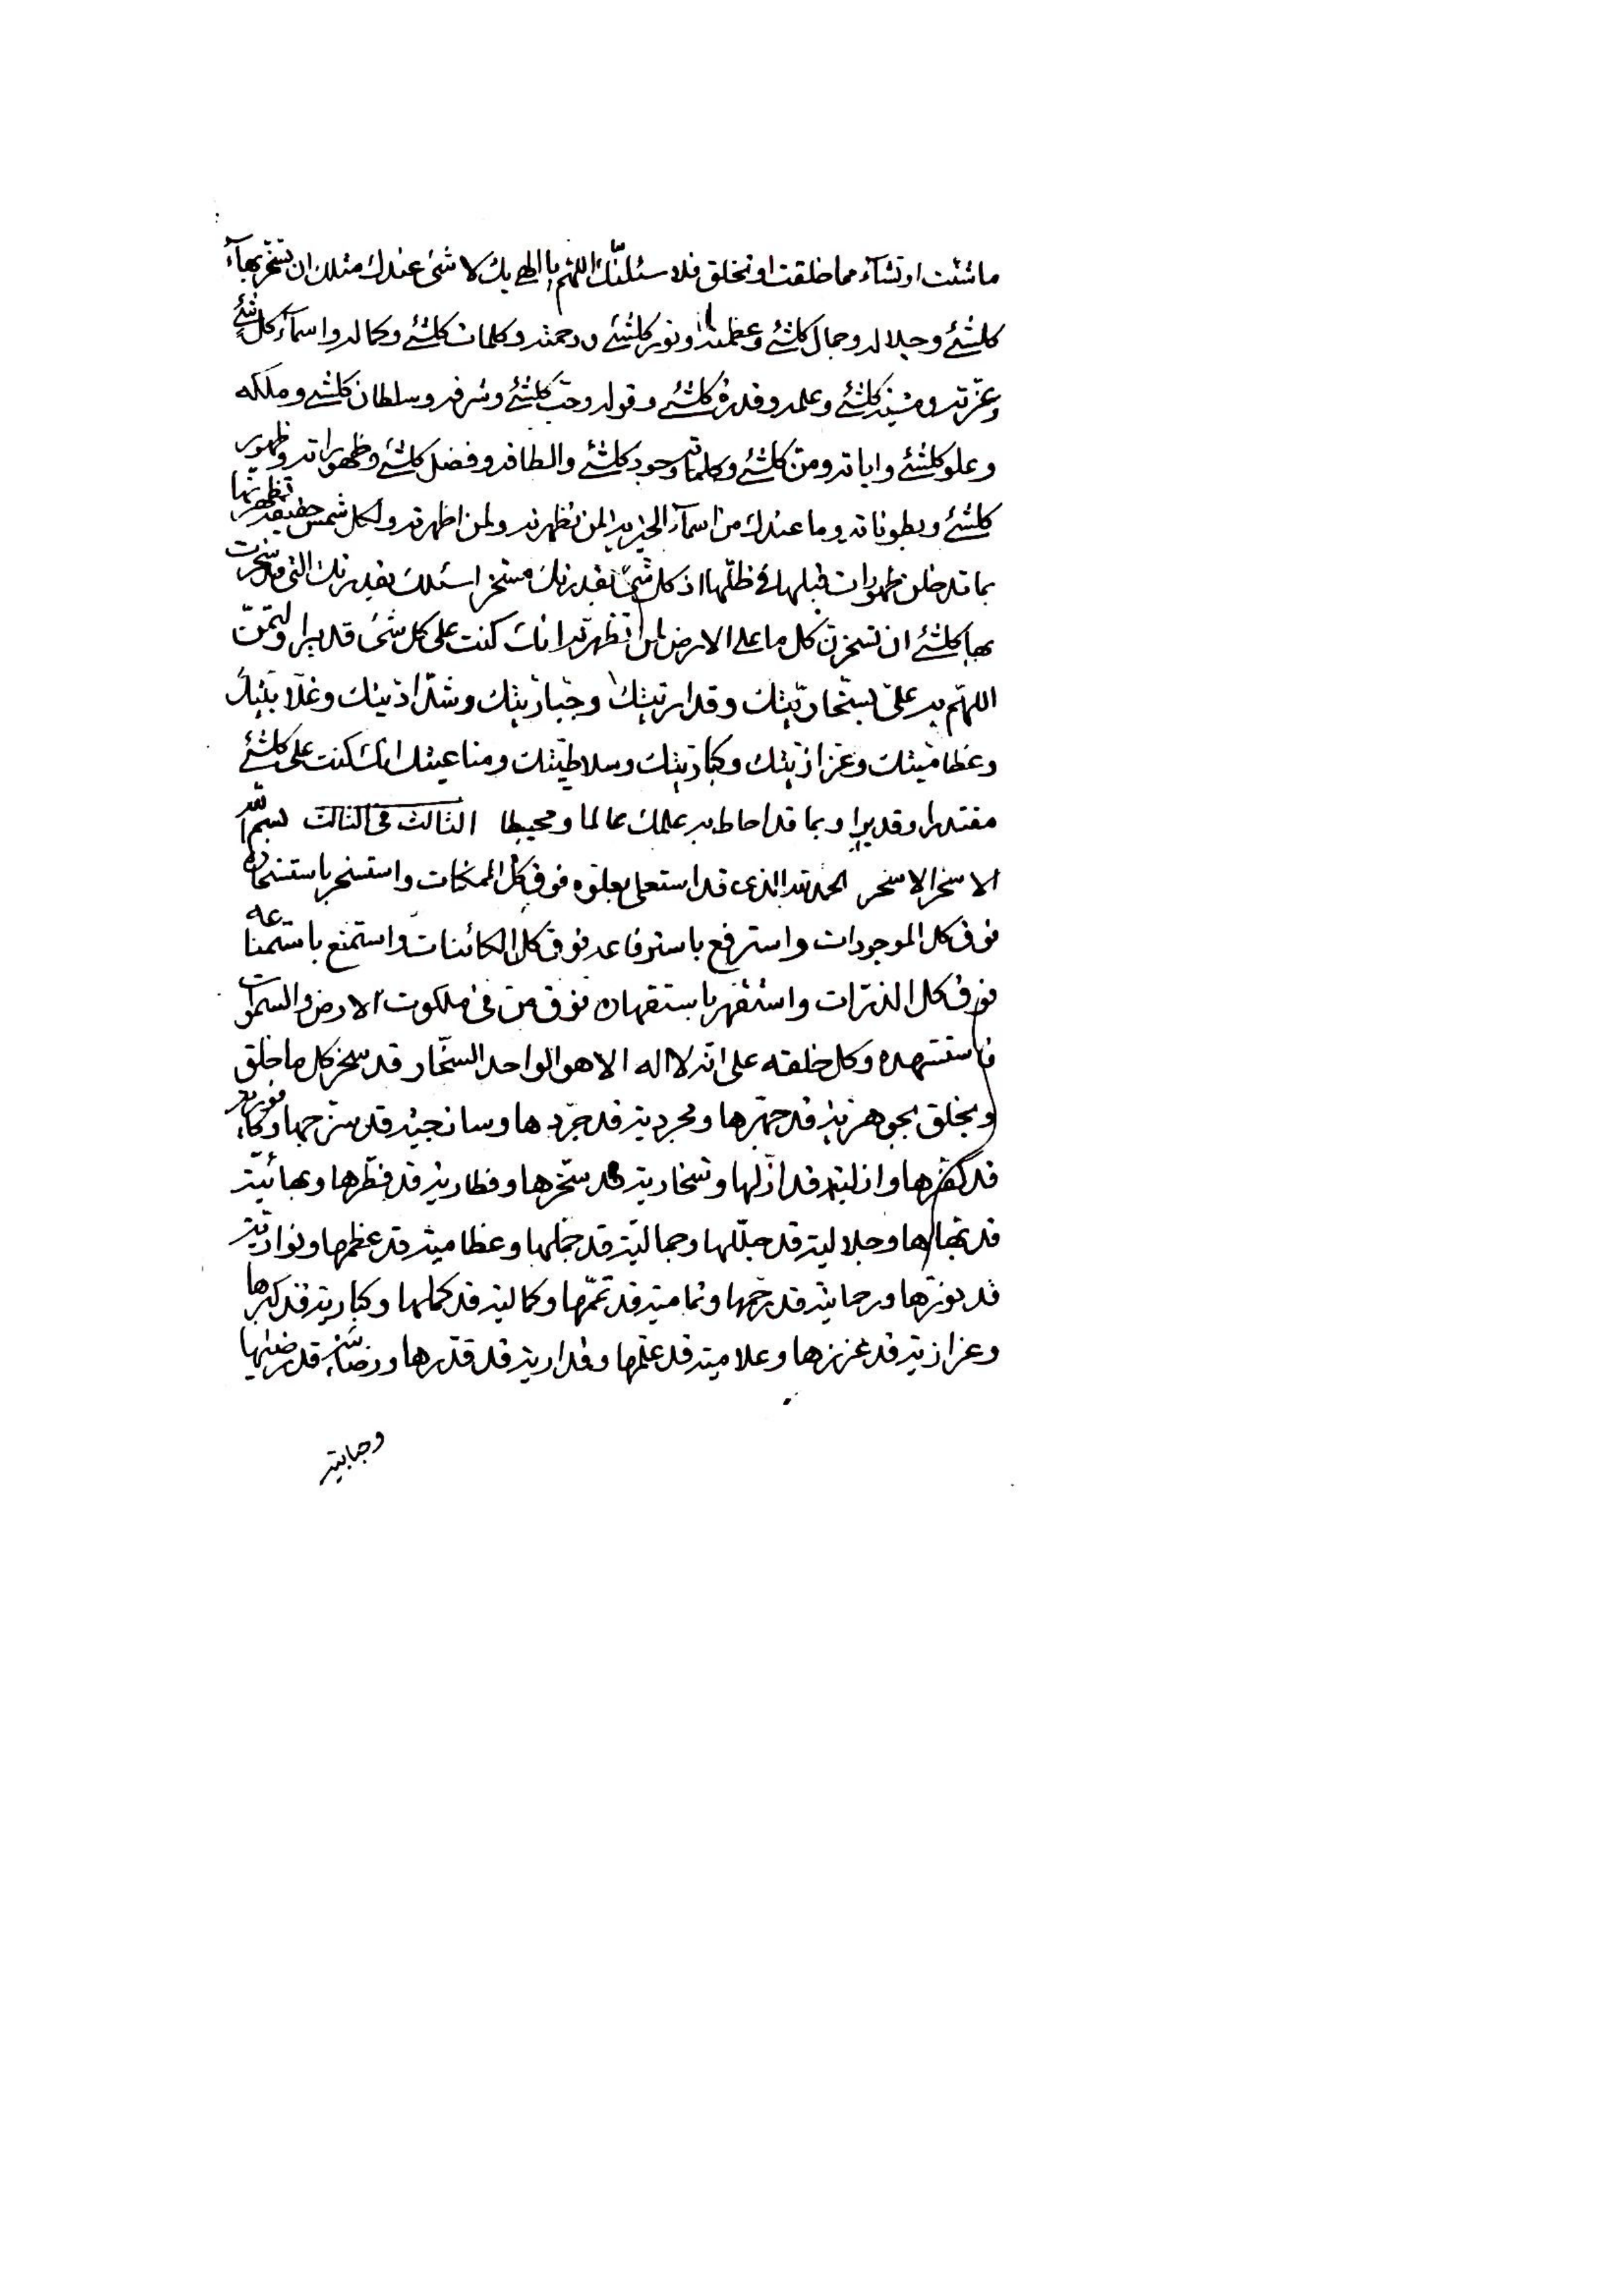 ما شئت او تشآء مما خلقت او تخلق فلا سئلنّك اللهم يا الهى بك لا شئ عندك مثلك ان تسخر بهآء
كلشئ و جلاله و جمال كلشئ و عظمته و نور كلشئ و رحمته و كلمات كلشئ و كماله و اسمآء كل شئ
و عزته و مشيته كلشئ و علمه و قدرة كلشئ و قوله و حب كلشئ و شرفه و سلطان كلشئ و ملكه
و علو كلشئ و اياته و من كلشئ و كلماته و جود كلشئ و الطافه و فضل كلشئ و ظهوراته و ظهور
كلشئ و بطوناته و ما عندك من اسمآء الخيريه لمن تظهرنه و لمن اظهرته و لكل شمس حقيقه تظهرنها
بما قد خلق ظهورات قبلها فى ظلها اذ كل شئ بقدرتك مستخر اسئلك بقدرتك التى قد سخرت
بها كلشئ ان تسخرن كل ما على الارض لمن تظهرنه انك كنت على كل شئ قديرا و لتمنن
اللهم به علىّ بسخاريتك و قداريتك و جباريتك و شداديتك و غلابيتك
و عظاميتك و عزازيتك و كباريتك و سلاطيتك و مناعيتك انك كنت على كلشئ
مقتدرا و قديرا و بما قد احاط به علمك عالما و محيطا الثالث فى الثالث بسم الله
الاسخر الاسخر الحمد لله الذى قد استعلى بعلوه فوق كل الممكنات و استسخر باستسخاره
فوق كل الموجودات و استرفع باسترفاعه فوق كل الكائنات و استمنع باستمناعه
فوق كل الذرات و استقهر باستقهاره فوق من فى ملكوت الارض و السموات
فاستشهده و كل خلقه على انه لا اله الا هو الواحد السخّار قد سخر كل ما خلق
و يخلق بجوهرية قد جهرها و مجردية قد جرّدها و سانجية قد سزجها و كافورية
قد كفرها و ازلية قد ازّلها و سخارية قد سخرها و فطارية قد فطّرها و بهائية
قد بهّاها و جلالية قد جللها و جمالية قد جملها و عظامية قد عظمها و نوارية
قد نورها و رحمانية قد رحمها و تمامية قد تممها و كمالية قد كملها و كبارية قد كبرها
و عزازية قد عززها و علامية قد علمها و قدارية قد قدرها و رضائية قد رضيها
و جبابية